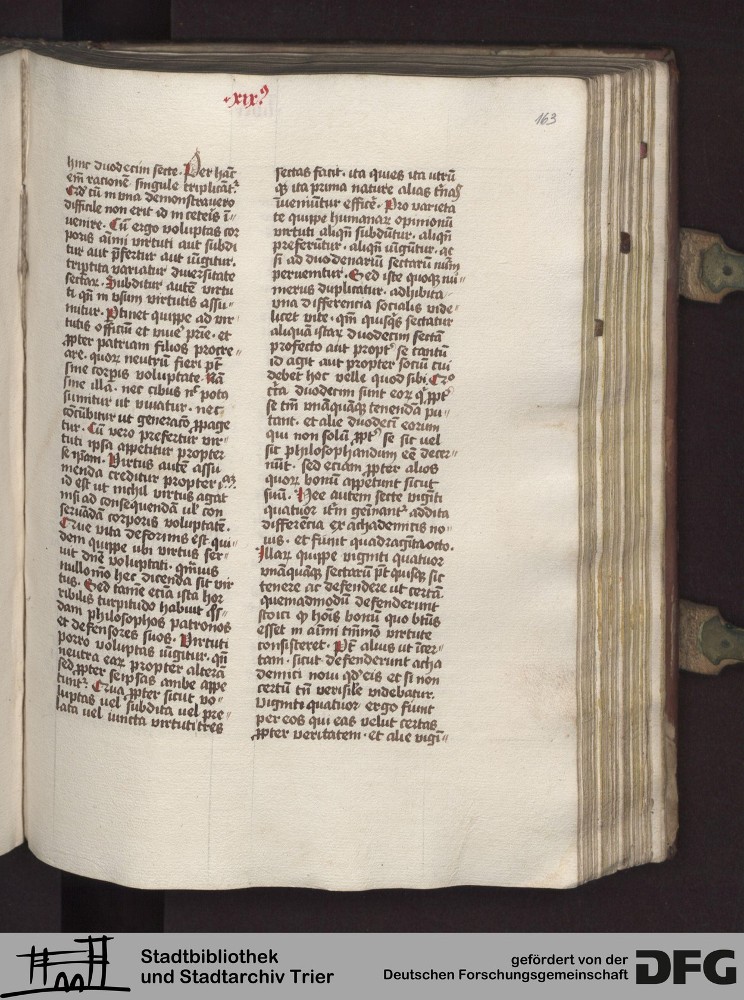 xix⁹
163
hinc duodecim secte. Per hāc
em̄ rationē singule triplicāt.
Qd̓ cū in vna demonstravero
difficile non erit id in ceteis ī=
uenire. Cū ergo voluptas cor
poris aīmi virtuti aut subdi
tur aut p̄fertur aut iūgitur.
tripītita variatur diuersitate
sectaꝝ. Subditur autē virtu
ti qn̄ in vsum virtutis assu=
mitur. Ptinet quippe ad vir=
tutis officiū et viuē prie. et
ꝓpter patriam filios procre=
are. quoꝝ neutrū fieri pt̄
sine corpis voluptate. Nā
sine illā. nec cibus nec potꝰ
sumitur ut viuatur. nec
cōcūbitur ut generacō ꝓpage
tur. Cū vero prefertur vir=
tuti ipsa appetitur propter
se ip̄am. Virtus autē assu
menda creditur propter illā
id est ut nichil virtus agat
nisi ad consequendā ul̓ con
seruādā corporis voluptatē.
Que vita deformis est qui=
dem quippe ubi virtus ser=
uit dn̄e voluptati. qmuis
nullomō hec dicenda sit vir
tus. Sed tamē ecia ista hor
ribilis turpitudo habuit q̄s=
dam philosophos patronos
et defensores suos. Virtuti
porro voluptas iūgitur. qn̄
neutra eaꝝ propter alterā
sed ꝓpter seipsas ambe appe
tuntᷣ. Qua ꝓpter sicut vo=
luptas vel subdita vel pre=
lata uel iuncta virtuti tres
sectas facit. ita quies ita utrū
qꝫ ita prima nature alias tn̄as
īueniūntur efficē. Pro varieta
te quippe humanaꝝ opinionū
virtuti aliqn̄ subdūtur. aliqn̄
preferūtur. aliqn̄ iūgūtur. ac
si ad duodenariū sectarū nūm̄
peruenitur. Sed iste quoqꝫ nu=
merus duplicatur. adhibita
vna differencia socialis vide=
licet vite. qm̄ quisq̓s sectatur
aliquā istaꝝ duodecim sectā
profecto aut proptᷣ se tantū
id agit aut propter sociū cui
debet hoc velle quod sibi. Qr̄o
cīca duodecim sunt eoꝝ q̓ ꝓptᷣ
se tm̄ vnāquāqꝫ tenendā pu=
tant. et alie duodecī eorum
qui non solū ꝓptᷣ se sic uel
sic philosophandum eē decer=
nūt. sed eciam ꝓpter alios
quoꝝ bonū appetunt sicut
suū. Hee autem secte viginti
quatuor itm̄ gemināntᷣ. addita
differēcia ex achademicis no=
uis. et fiunt quadragīta octo.
Illaꝝ quippe viginti quatuor
vnāquāqꝫ sectarū pt̄ quisqꝫ sic
tenere ac defendere ut certā.
quemadmodū defenderunt
stoici q̓ hoīs bonū quo btūs
esset in aīmi tm̄mō virtute
consisteret. Pt̄ alius ut īcer=
tam. sicut defenderunt acha
demici noui qd̓ eis et si non
certū tn̄ verisile videbatur.
viginti quatuor ergo fiunt
per eos qui eas velut certas
ꝓpter veritatem. et alie vigī=
Stadtbibliothek
und Stadtarchiv Trier
gefördert von der
Deutschen Forschungsgemeinschaft
DFG